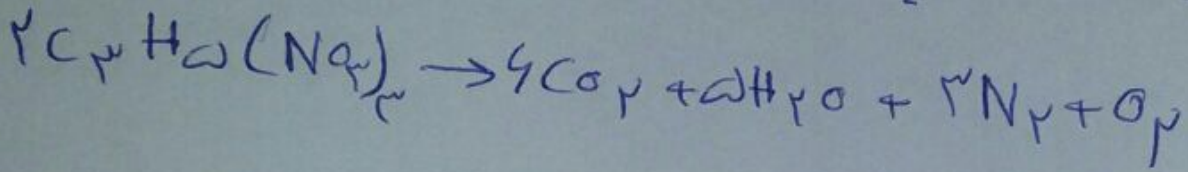 ۲C۳H۵(NO۳)۳ → ۶CO۲ + ۵H۲O + ۳N۲ + O۲